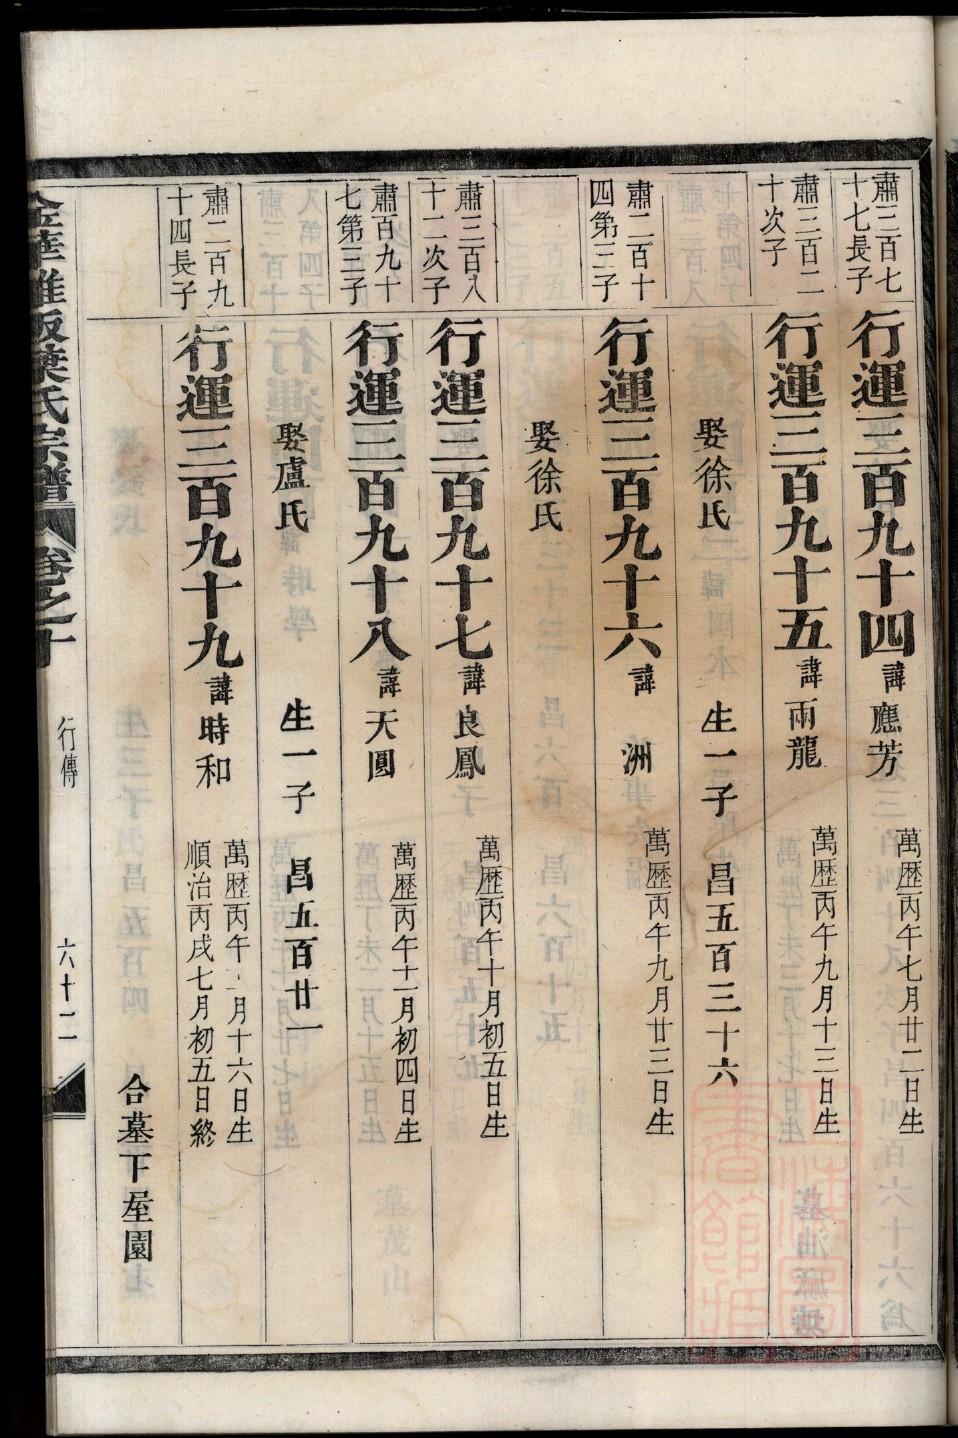 肅三百七
十七長子
行運三百九十四
諱應芳
萬歷丙午七月廿二日生
肅三百二
十次子
行運三百九十五
諱雨龍
萬歷丙午九月十三日生
娶徐氏
生一子
昌五百三十六
肅二百十
四第三子
行運三百九十六
諱洲
萬歷丙午九月廿三日生
娶徐氏
肅三百八
十二次子
行運三百九十七
諱良鳳
萬歷丙午十月初五日生
肅百九十
七第三子
行運三百九十八
諱天圓
萬歷丙午十一月初四日生
娶盧氏
生一子
昌五百廿一
肅二百九
十四長子
行運三百九十九
諱時和
萬歷丙午
月十六日生
順治丙戌七月初五日終
合墓下屋園
金華
葉氏宗譜
卷之十
行傳
六十二